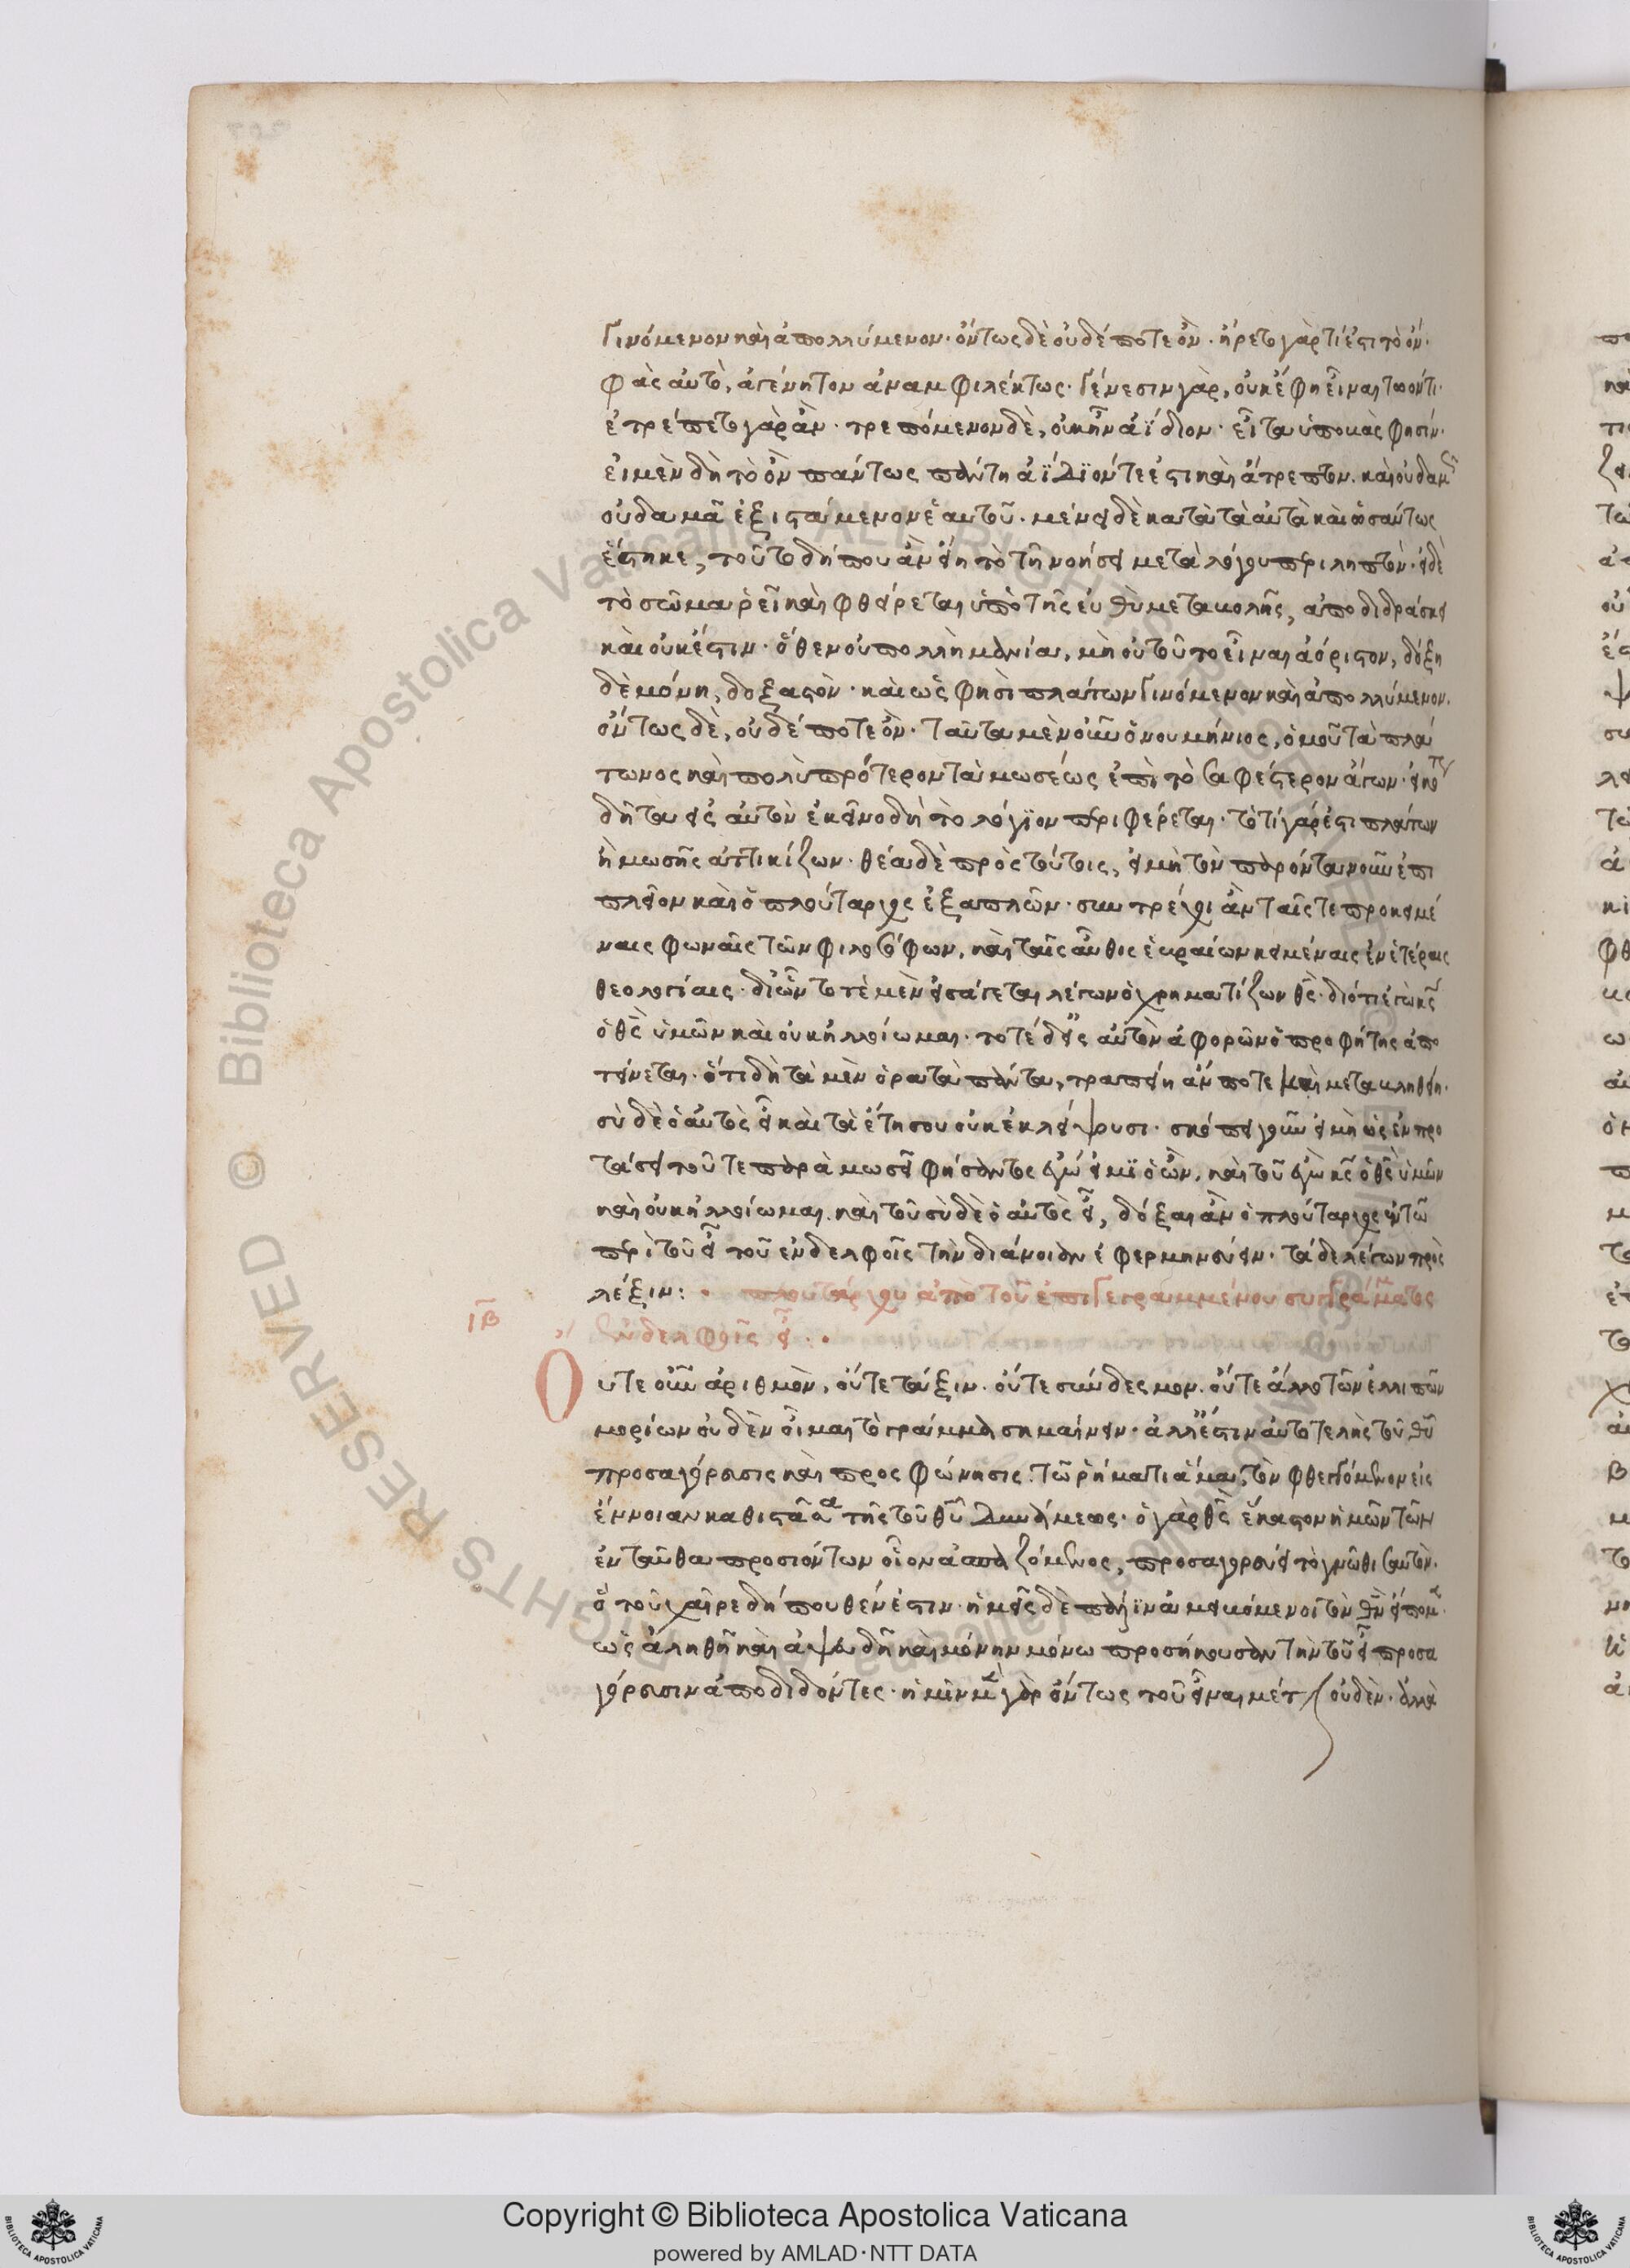 γινόμενον καὶ ἀπολλύμενον· ὄντως δὲ οὐδέποτε ὄν· ἤρετο γὰρ τί ἐστι τὸ ὄν·
φὰς αὐτὸ, ἀγένητον ἀναμφιλέκτως· γένεσιν γὰρ, οὐκ ἔφη εἶναι τῶ ὄντι·
ἐτρέπετο γὰρ ἂν· τρεπόμενον δὲ, οὐκ ἦν ἀΐδιον· εἶτα ὑποβὰς φησίν·
εἰ μὲν δὴ τὸ ὂν πάντως πάντη ἀΐδιόν τέ ἐστι καὶ ἄτρεπτον. καὶ οὐδαμῆ
οὐδαμᾶ ἐξιστάμενον ἑαυτοῦ· μένει δὲ κατὰ τὰ αὐτὰ καὶ ὡσαύτως
ἕστηκε, τοῦτο δήπου ἂν εἴη τὸ τῆ νοήσει μετὰ λόγου περιληπτόν· εἰ δὲ
τὸ σῶμα ῥεῖ καὶ φθείρεται ὑπὸ τῆς εὐθὺ μεταβολῆς, ἀποδιδράσκει
καὶ οὐκ ἔστιν· ὅθεν οὐ πολλὴ μανία, μὴ οὐ τοῦτο εἶναι ἀόριστον, δόξη
δὲ μόνη, δοξαστόν· καὶ ὥς φησὶ πλάτων γινόμενον καὶ ἀπολλύμενον.
ὄντως δὲ, οὐδέποτε ὄν· ταῦτα μὲν οὖν ὁ νουμήνιος, ὁμοῦ τὰ πλά
τωνος καὶ πολὺ πρότερον τὰ μωσέως ἐπὶ τὸ σαφέστερον ἄγων· εἰκό
δῆτα εἰς αὐτὸν ἐκεῖνο δὴ τὸ λόγιον περιφέρεται· τὸ τί γάρ ἐστι πλάτων
ἢ μωσῆς ἀττικίζων· θέα δὲ πρὸς τούτοις, εἰ μὴ τὸν παρόντα νοῦν ἐπι
πλεῖον καὶ ὁ πλούταρχος ἐξαπλῶν· συντρέχοι ἂν ταῖς τε προκειμέ
ναις φωναῖς τῶν φιλοσόφων, καὶ ταῖς αὖθις ἑβραίων κειμέναις ἐν ἑτέραις
θεολογίαις· δι' ὧν τοτὲ μὲν εἰσάγεται λέγων ὁ χρηματίζων θς· διότι ἐγὼ κς
ὁ θς ὑμῶν καὶ οὐκ ἠλλοίωμαι· τοτὲ δ' εἰς αὐτὸν ἀφορῶν ὁ προφήτης ἀπο
τείνεται· ὅτι δὴ τὰ μὲν ὁρατὰ πάντα, τραπείη ἄν ποτε καὶ μεταβληθείη·
σὺ δὲ ὁ αὐτὸς εἶ καὶ τὰ ἔτη σου οὐκ ἐκλείψουσι· σκόπει γοῦν εἰ μὴ ὡς ἐν προ
τάσει τοῦ τε παρὰ μωσεῖ φήσαντος ἐγώ εἰμι ὁ ὤν, καὶ τοῦ ἐγὼ κς ὁ θς ὑμῶν
καὶ οὐκ ἠλλοίωμαι. καὶ τοῦ σὺ δὲ ὁ αὐτὸς εἶ, δόξαι ἂν ὁ πλούταρχος ἐν τῶ
περὶ τοῦ εἶ τοῦ ἐν δελφοῖς τὴν διάνοιαν ἐφερμηνεύειν· τάδε λέγων πρὸς
λέξιν: · πλουτάρχου ἀπὸ τοῦ ἐπιγεγραμμένου συγγράμματος
ιβ ἐν δελφοῖς εἶ ··
Οὔτε οὖν ἀριθμὸν, οὔτε τάξιν. οὔτε σύνδεσμον. οὔτε ἄλλο τῶν ἐλλιπῶν
μορίων οὐδὲν οἶμαι τὸ γράμμα σημαίνειν· ἀλλ' ἔστιν αὐτοτελὴς τοῦ θυ
προσαγόρευσις καὶ προσφώνησις. τῶ ῥήματι ἅμα, τὸν φθεγγόμενον εἰς
ἔννοιαν καθιστᾶσα τῆς τοῦ θυ δυνάμεως· ὁ γὰρ θς ἕκαστον ἡμῶν τῶν
ἐνταῦθα προσιόντων οἷον ἀσπαζόμενος, προσαγορεύει τὸ γνῶθι σαυτόν.
ὃ τοῦ χαῖρε δήπουθέν ἐστιν· ἡμεῖς δὲ πάλιν ἀμειβόμενοι τὸν θν εἴπομεν.
ὡς ἀληθῆ καὶ ἀψευδῆ καὶ μόνην μόνω προσήκουσαν τὴν τοῦ εἶ προσα
γόρευσιν ἀποδιδόντες· ἡμῖν μὲν γὰρ ὄντως τοῦ εἶναι μέτεστιν οὐδὲν· ἀλλὰ